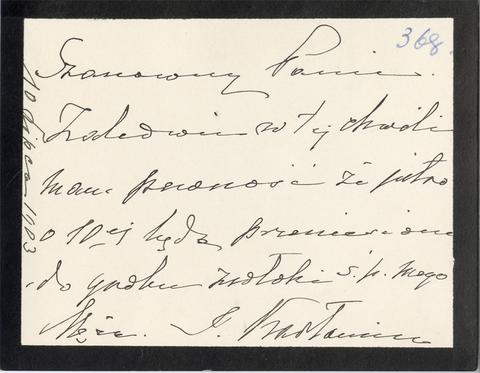 368.
Szanowny Panie.
Zaledwie w tej chwili
mam pewność że jutro
o 10ej będą przeniesione
do grobu zwłoki ś. p. mego
Męża. J.
10 Lipca 1903